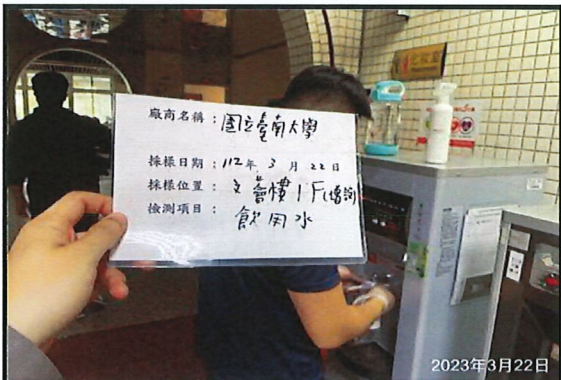 廠商名稱：國立臺南大學
採樣日期：112年 3 月 22 日
採樣位置：文薈樓 1F
檢測項目：飲用水
2023年3月22日